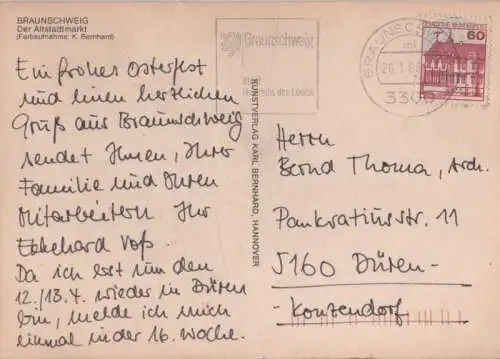 BRAUNSCHWEIG
Der Altstadtmarkt
(Farbaufnahme: K. Bernhard)
Ein frohes Osterfest
und einen herzlichen
Gruß aus Braunschweig
sendet Ihnen, Ihrer
Familie und Ihren
Mitarbeitern Ihr
Ekkehard Voß.
Da ich erst um den
12./13.4. wieder in Düren
bin, melde ich mich
einmal in der 16. Woche.
KUNSTVERLAG KARL BERNHARD, HANNOVER
Braunschweig
des Löwen
BRAUNSCHWEIG
3300
DEUTSCHE BUNDESPOST
60
Herrn
Bernd Thoma, Arch.
Pankratiusstr. 11
5160 Düren-
-Konzendorf